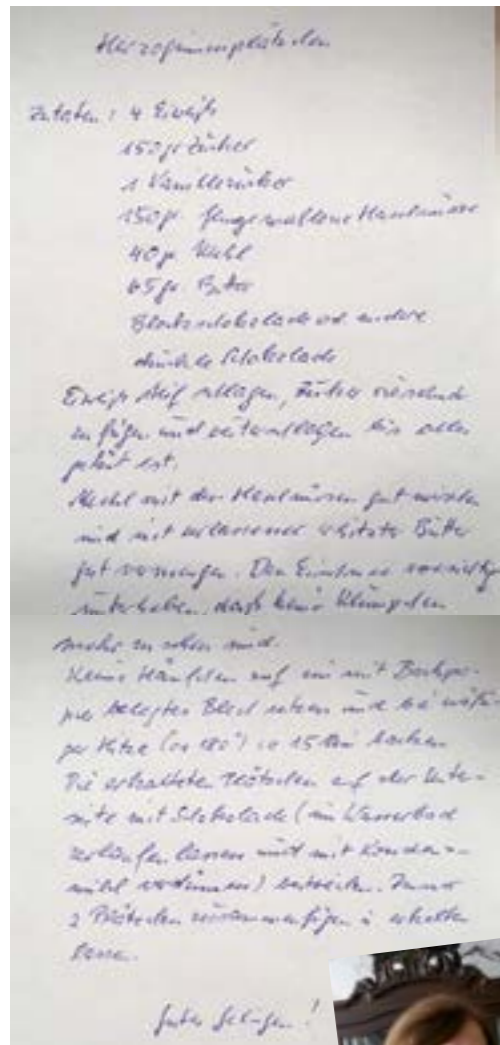 Herzoginnenplätzchen
Zutaten: 4 Eiweiß
150 gr Zucker
1 Vanillezucker
150 gr. feingemahlene Haselnüsse
40 gr Mehl
65 gr. Butter
Blockschokolade od. andere
dunkle Schokolade
Eiweiß steif schlagen, Zucker rieselnd
zufügen und weiterschlagen bis alles
gelöst ist.
Mehl mit den Haselnüssen gut mischen
und mit zerlassener erhitzter Butter
gut vermengen. Den Eischnee vorsichtig
unterheben, daß keine Klümpchen
mehr zu sehen sind.
Kleine Häufchen auf ein mit Backpa-
pier belegtes Blech setzen und bei mäßi-
ger Hitze (ca 180°) ca 15 Min backen
Die erkalteten Plätzchen auf der Unter-
seite mit Schokolade (im Wasserbad
zerlaufen lassen und mit Konden-
milch verdünnen) bestreichen. Immer
2 Plätzchen zusammenfügen u erkalten
lassen.
Gutes Gelingen!